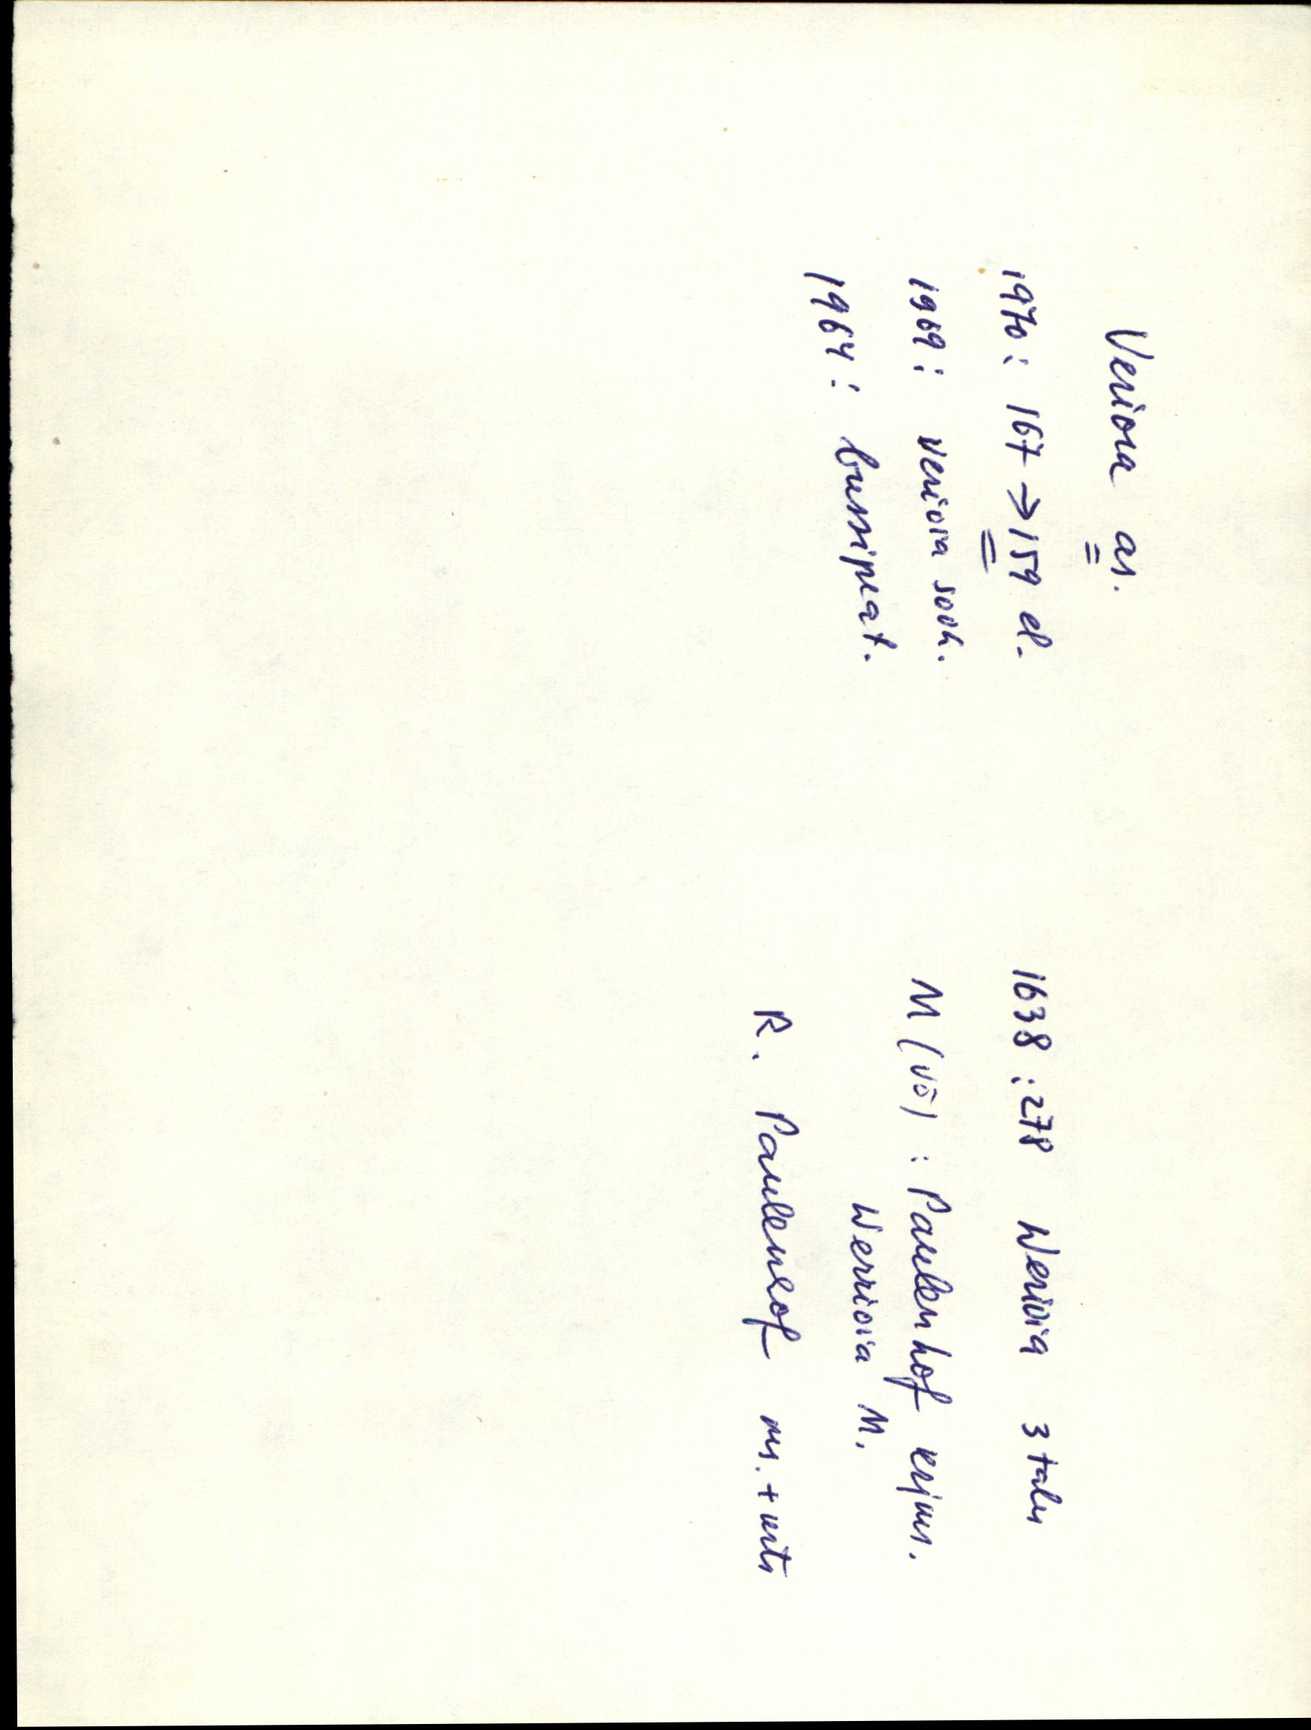 Veriora as.
1970: 167 → 159 el.
1969: Veriora sovh.
1964: bussipeat.
1638: 278 Werioia 3 talu
M (võ): Paulenhof krjms.
Werrioia M.
R. Paulenhof ms. +